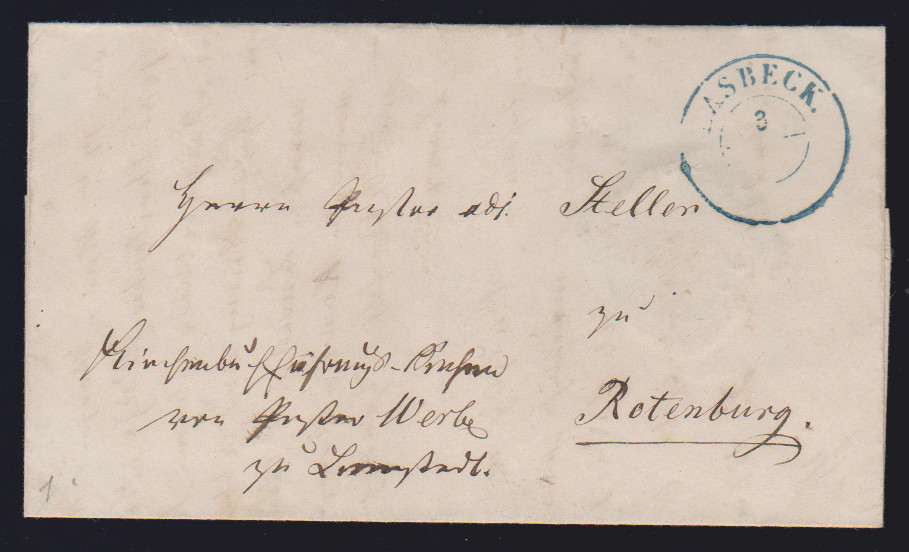 ASBECK.
3
Herrn Pastor adj. Steller
zu
Rotenburg.
Kirchenbuchführungs-Sachen
von Pastor Werbe
zu Lamstedt.
1